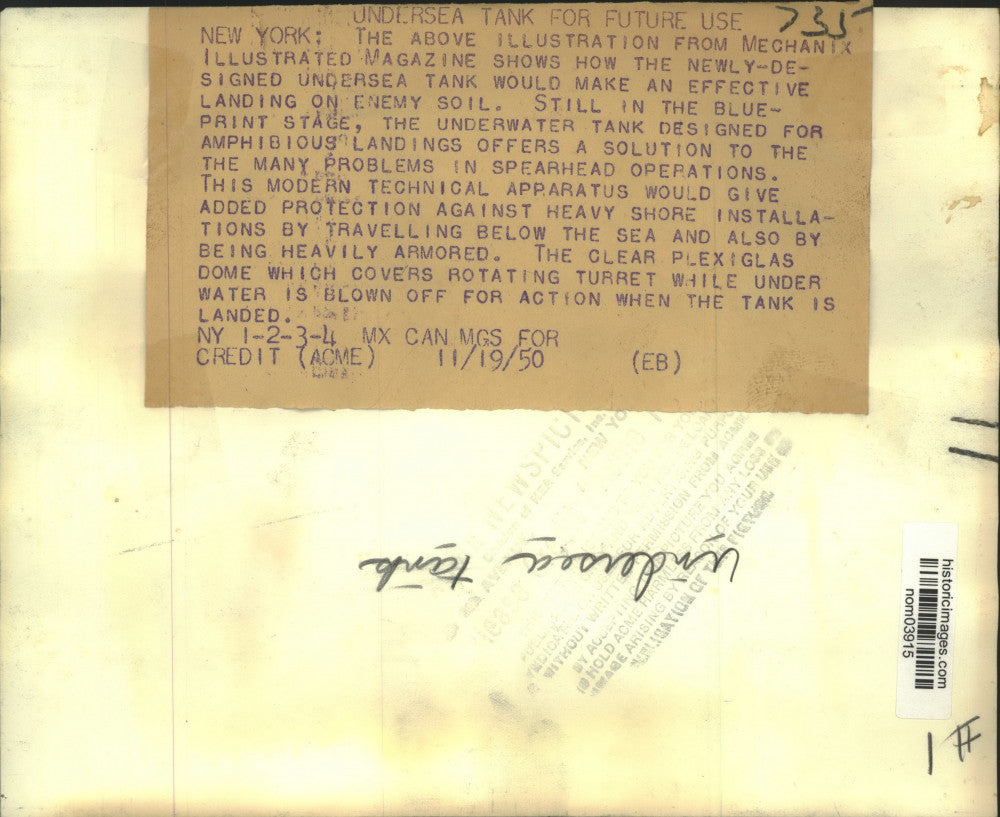 UNDERSEA TANK FOR FUTURE USE
735
NEW YORK: THE ABOVE ILLUSTRATION FROM MECHANIX
ILLUSTRATED MAGAZINE SHOWS HOW THE NEWLY-DE-
SIGNED UNDERSEA TANK WOULD MAKE AN EFFECTIVE
LANDING ON ENEMY SOIL. STILL IN THE BLUE-
PRINT STAGE, THE UNDERWATER TANK DESIGNED FOR
AMPHIBIOUS LANDINGS OFFERS A SOLUTION TO THE
THE MANY PROBLEMS IN SPEARHEAD OPERATIONS.
THIS MODERN TECHNICAL APPARATUS WOULD GIVE
ADDED PROTECTION AGAINST HEAVY SHORE INSTALLA-
TIONS BY TRAVELLING BELOW THE SEA AND ALSO BY
BEING HEAVILY ARMORED. THE CLEAR PLEXIGLAS
DOME WHICH COVERS ROTATING TURRET WHILE UNDER
WATER IS BLOWN OFF FOR ACTION WHEN THE TANK IS
LANDED.
NY 1-2-3-4 MX CAN MGS FOR
CREDIT (ACME) 11/19/50 (EB)
undersea tank
historicimages.com
nom03915
#1